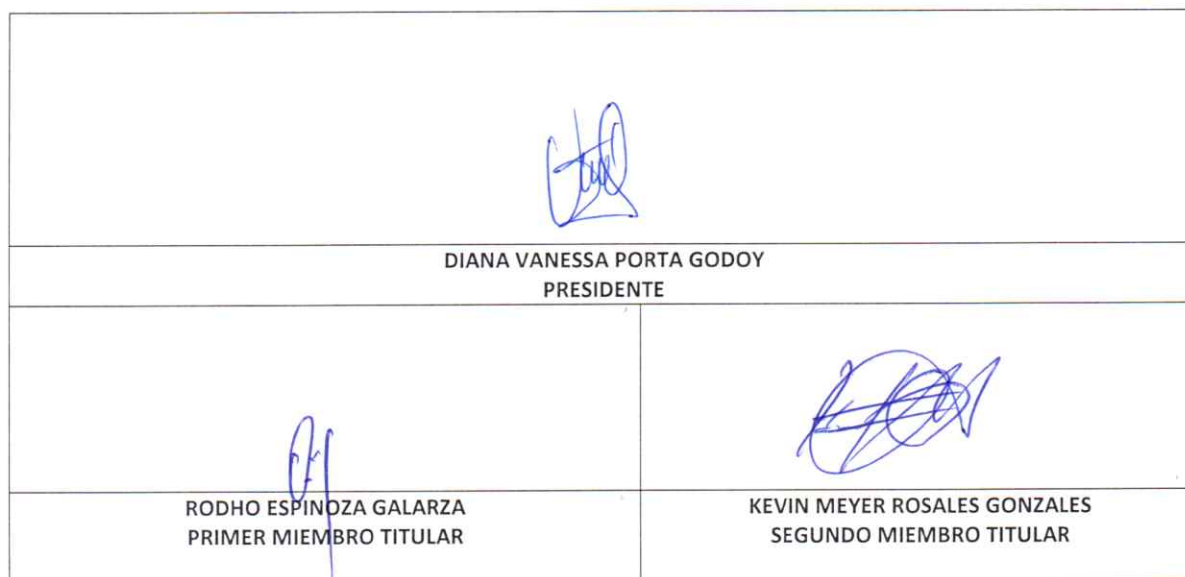 DIANA VANESSA PORTA GODOY
PRESIDENTE
RODHO ESPINOZA GALARZA
PRIMER MIEMBRO TITULAR
KEVIN MEYER ROSALES GONZALES
SEGUNDO MIEMBRO TITULAR